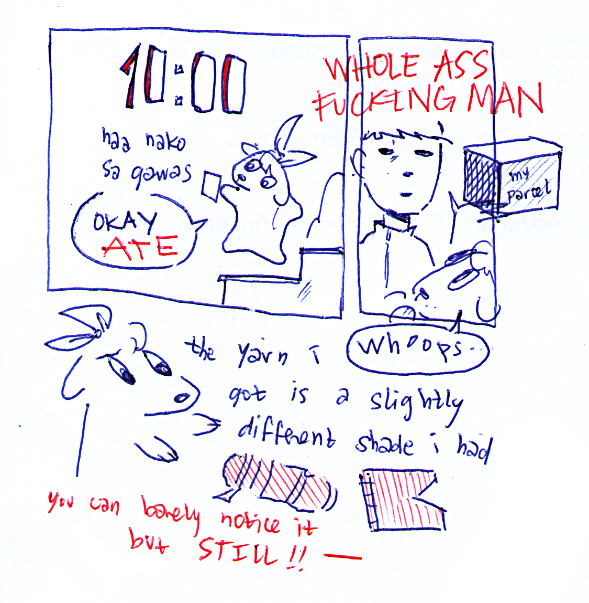 10:00
naa nako
sa gawas
OKAY
ATE
WHOLE ASS
FUCKING MAN
my
parcel
whoops..
the yarn i
got is a slightly
different shade i had
you can barely notice it
but STILL!! —